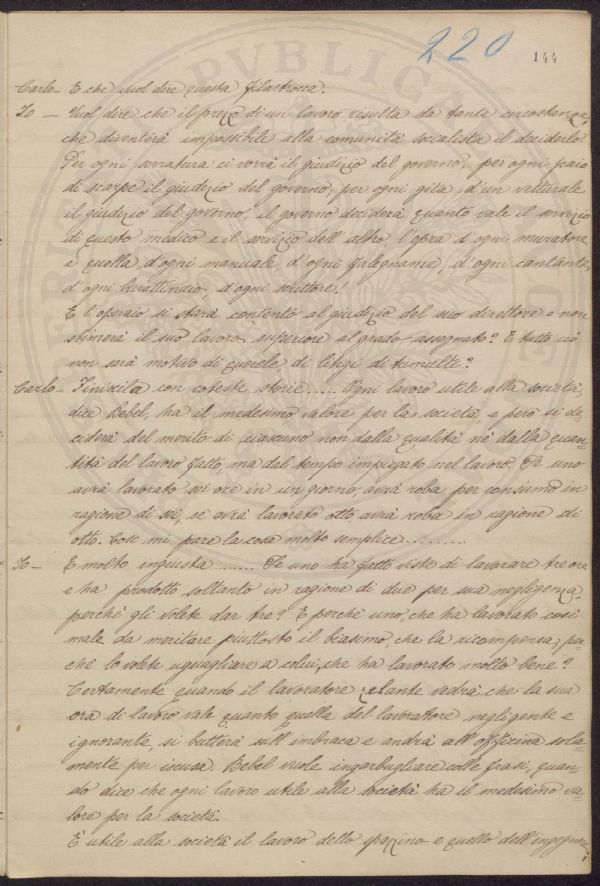 220
144
Carlo – E che vuol dire questa filastrocca.
Io – Vuol dire che il prezzo di un lavoro risulta da tante circostanze,
che diventerà impossibile alla comunità socialista il deciderlo.
Per ogni serratura ci vorrà il giudizio del governo, per ogni paio
di scarpe il giudizio del governo, per ogni gita d'un vetturale
il giudizio del governo, il governo deciderà quanto vale il servizio
di questo medico e il servizio dell'altro, l'opra d'ogni muratore
e quella d'ogni manuale, d'ogni falegname, d'ogni cantante,
d'ogni burattinaio, d'ogni scrittore!
E l'operaio si starà contento al giudizio del suo direttore e non
stimerà il suo lavoro superiore al grado assegnato? E tutto ciò
non sarà motivo di querele di litigi di tumulti?
Carlo – Finiscila con coteste storie..... Ogni lavoro utile alla società,
dice Bebel, ha il medesimo valore per la società, e però si de=
ciderà del merito di ciascuno non dalla qualità nè dalla quan=
tità del lavoro fatto, ma dal tempo impiegato nel lavoro. Se uno
avrà lavorato sei ore in un giorno, avrà roba per consumo in
ragione di sei, se avrà lavorato otto avrà roba in ragione di
otto. Così mi pare la cosa molto semplice..........
Io – E molto ingiusta....... Se uno ha fatto viste di lavorare tre ore
e ha prodotto soltanto in ragione di due per sua negligenza,
perchè gli volete dar tre? E perchè uno, che ha lavorato così
male da meritare piuttosto il biasimo, che la ricompensa, per=
chè lo volete uguagliare a colui, che ha lavorato molto bene?
Certamente quando il lavoratore zelante vedrà che la sua
ora di lavoro vale quanto quella del lavoratore negligente e
ignorante, si butterà sull'imbraca e andrà all'officina sola=
mente per iscusa. Bebel vuole ingarbugliare colle frasi, quan=
do dice che ogni lavoro utile alla società ha il medesimo va=
lore per la società.
È utile alla società il lavoro dello spazzino e quello dell'ingegnere,